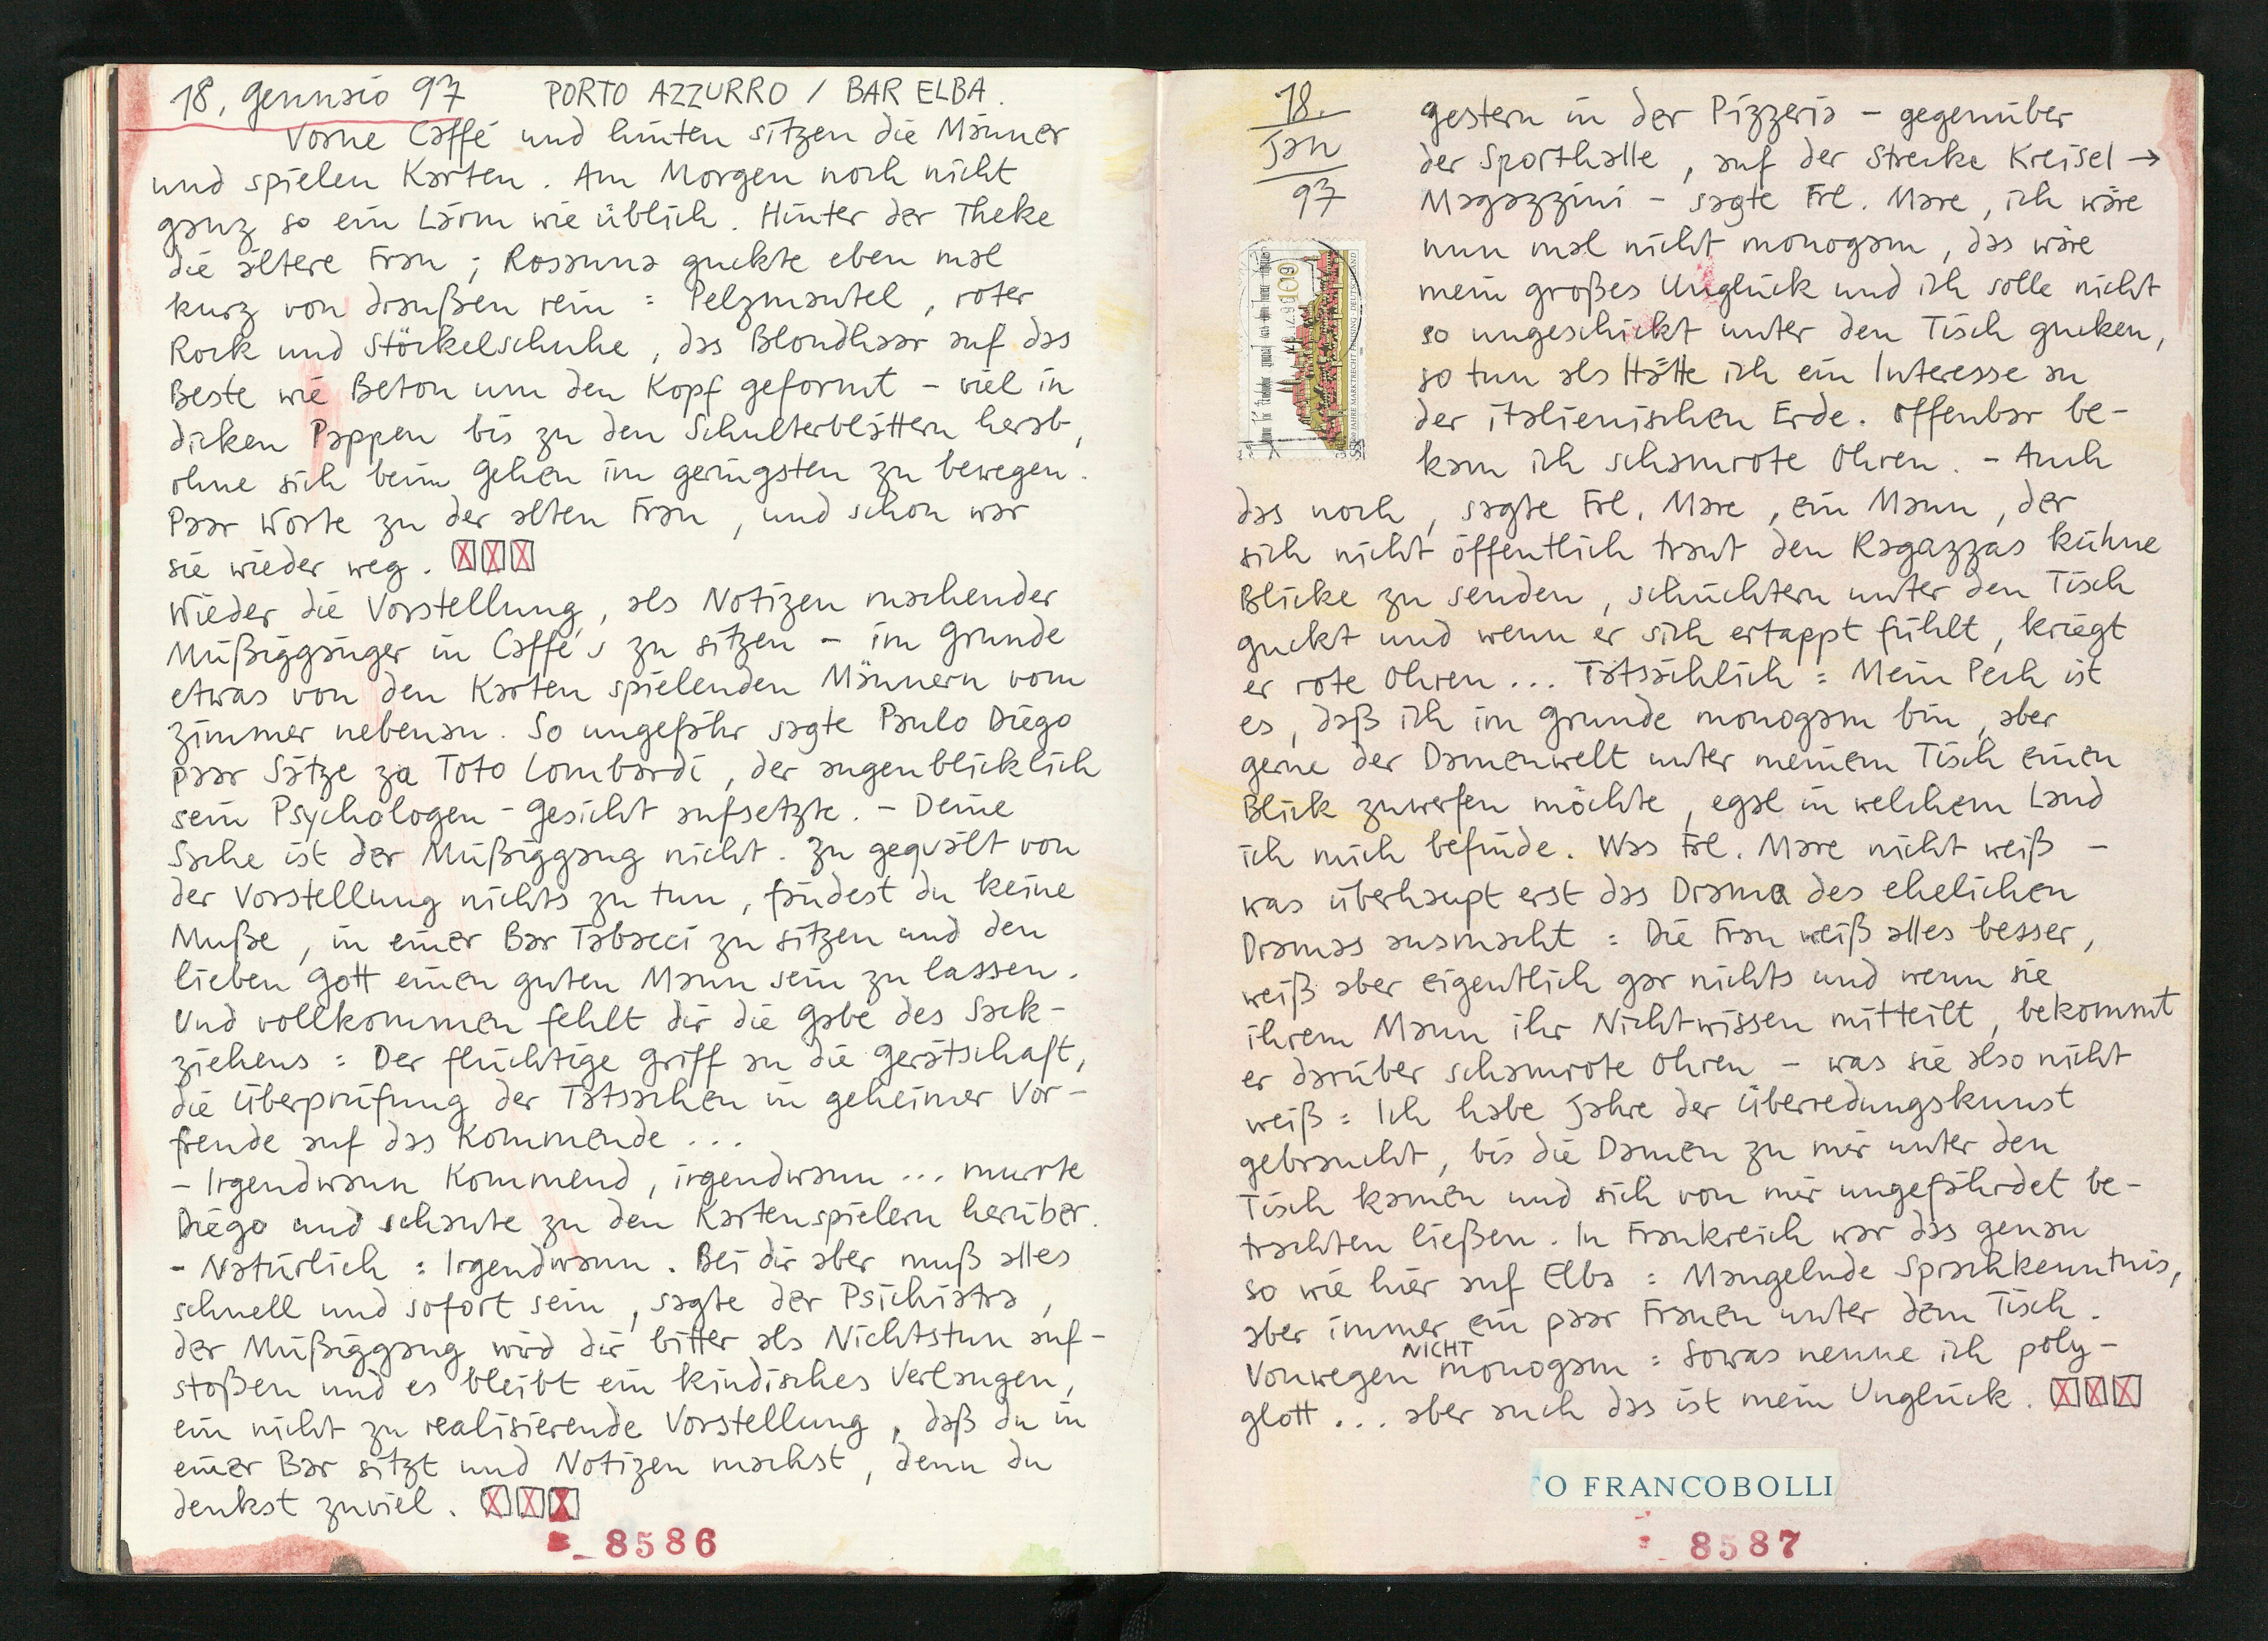 18. Gennaio 97 PORTO AZZURRO / BAR ELBA.
Vorne Caffé und hinten sitzen die Männer
und spielen Karten. Am Morgen noch nicht
ganz so ein Lärm wie üblich. Hinter der Theke
die ältere Frau; Rosanna guckte eben mal
kurz von draußen rein: Pelzmantel, roter
Rock und Stöckelschuhe, das Blondhaar auf das
Beste wie Beton um den Kopf geformt - viel in
dicken Pappen bis zu den Schulterblättern herab,
ohne sich beim Gehen im geringsten zu bewegen.
Paar Worte zu der alten Frau, und schon war
sie wieder weg.
Wieder die Vorstellung, als Notizen machender
Müßiggänger in Caffé's zu sitzen - im Grunde
etwas von den Karten spielenden Männern vom
Zimmer nebenan. So ungefähr sagte Paulo Diego
paar Sätze zu Toto Lombardi, der augenblicklich
sein Psychologen-Gesicht aufsetzte. - Deine
Sache ist der Müßiggang nicht. Zu gequält von
der Vorstellung nichts zu tun, findest du keine
Muße, in einer Bar Tabacci zu sitzen und den
lieben Gott einen guten Mann sein zu lassen.
Und vollkommen fehlt dir die Gabe des Sack-
ziehens: Der flüchtige Griff an die Gerätschaft,
die Überprüfung der Tatsachen in geheimer Vor-
freude auf das Kommende...
- Irgendwann Kommend, irgendwann... murrte
Diego und schaute zu den Kartenspielern herüber.
- Natürlich: Irgendwann. Bei dir aber muß alles
schnell und sofort sein, sagte der Psichiatra,
der Müßiggang wird dir bitter als Nichtstun auf-
stoßen und es bleibt ein kindisches Verlangen,
ein nicht zu realisierende Vorstellung, daß du in
einer Bar sitzt und Notizen machst, denn du
denkst zuviel.
8586
18.
Jan
97
Gestern in der Pizzeria - gegenüber
der Sporthalle, auf der Strecke Kreisel →
Magazzini - sagte Frl. Mare, ich wäre
nun mal nicht monogam, das wäre
mein großes Unglück und ich solle nicht
so ungeschickt unter den Tisch gucken,
so tun als Hätte ich ein Interesse an
der italienischen Erde. Offenbar be-
kam ich schamrote Ohren. - Auch
das noch, sagte Frl. Mare, ein Mann, der
sich nicht öffentlich traut den Ragazzas kühne
Blicke zu senden, schüchtern unter den Tisch
guckt und wenn er sich ertappt fühlt, kriegt
er rote Ohren... Tatsächlich: Mein Pech ist
es, daß ich im Grunde monogam bin, aber
gerne der Damenwelt unter meinem Tisch einen
Blick zuwerfen möchte, egal in welchem Land
ich mich befinde. Was Frl. Mare nicht weiß -
was überhaupt erst das Drama des ehelichen
Dramas ausmacht: Die Frau weiß alles besser,
weiß aber eigentlich gar nichts und wenn sie
ihrem Mann ihr Nichtwissen mitteilt, bekommt
er darüber schamrote Ohren - was sie also nicht
weiß: Ich habe Jahre der Überredungskunst
gebraucht, bis die Damen zu mir unter den
Tisch kamen und sich von mir ungefährdet be-
trachten ließen. In Frankreich war das genau
so wie hier auf Elba: Mangelnde Sprachkenntnis,
aber immer ein paar Frauen unter dem Tisch.
Vonwegen NICHT monogam: Sowas nenne ich poly-
glott... aber auch das ist mein Unglück.
100
JAHRE MARKTRECHT FREISING · DEUTSCHLAND
TO FRANCOBOLLI
8587